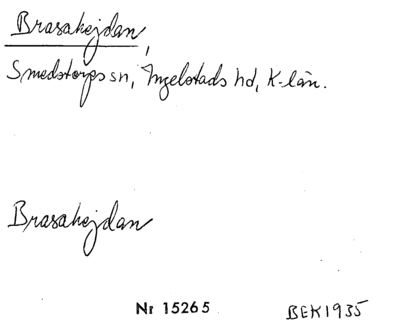 Brasahejdan,
Smedstorps sn, Ingelstads hd, K-län.
Brasahejdan
Nr 15265 BEK1935